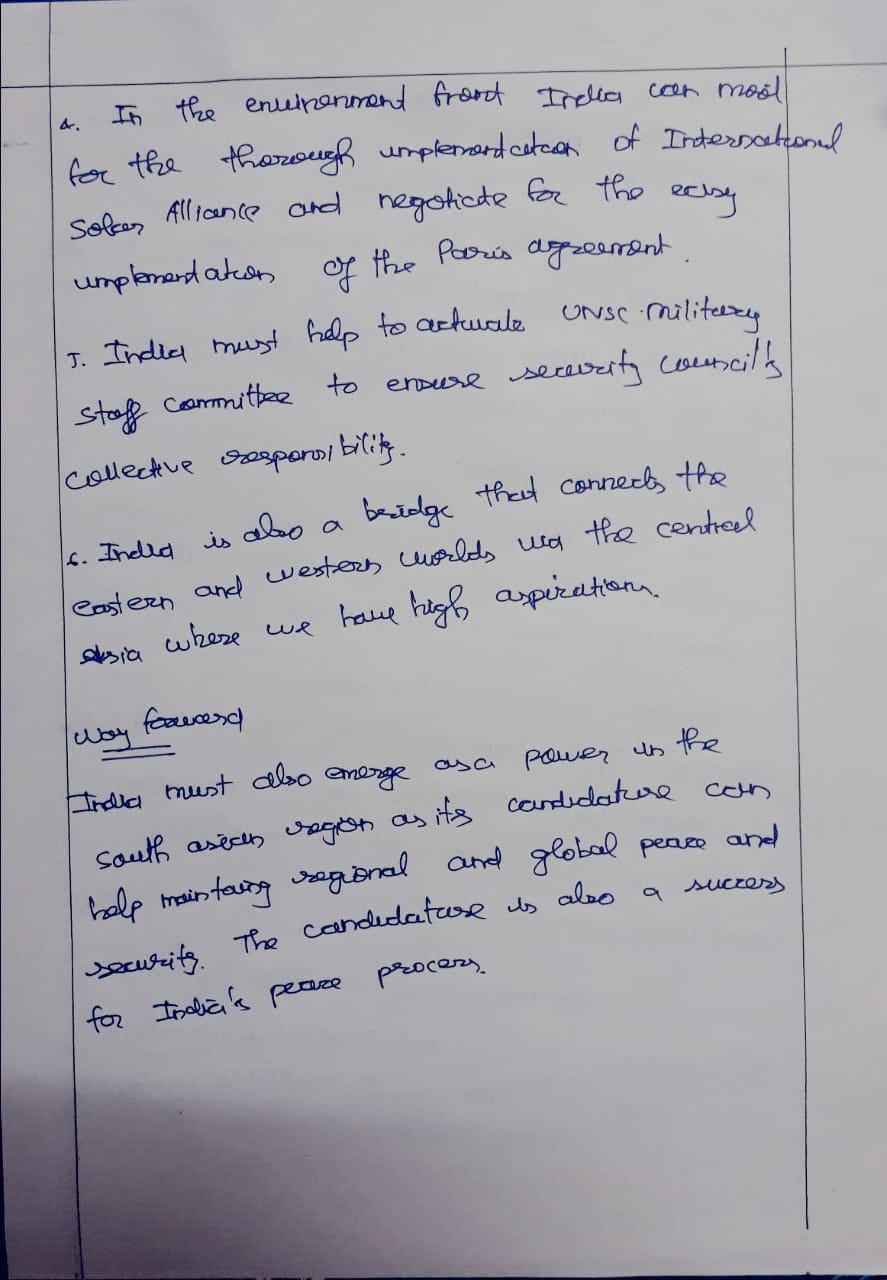 4. In the environment front India can mool
for the thorough implementation of International
Solar Alliance and negotiate for the easy
implementation of the Paris agreement.
5. India must help to actuate UNSC military
staff committee to ensure security council's
collective responsibility.
6. India is also a bridge that connects the
eastern and western worlds via the central
Asia where we have high aspirations.
Way forward
India must also emerge as a power in the
south asean region as its candidature can
help maintaing regional and global peace and
security. The candidature is also a success
for India's peace process.